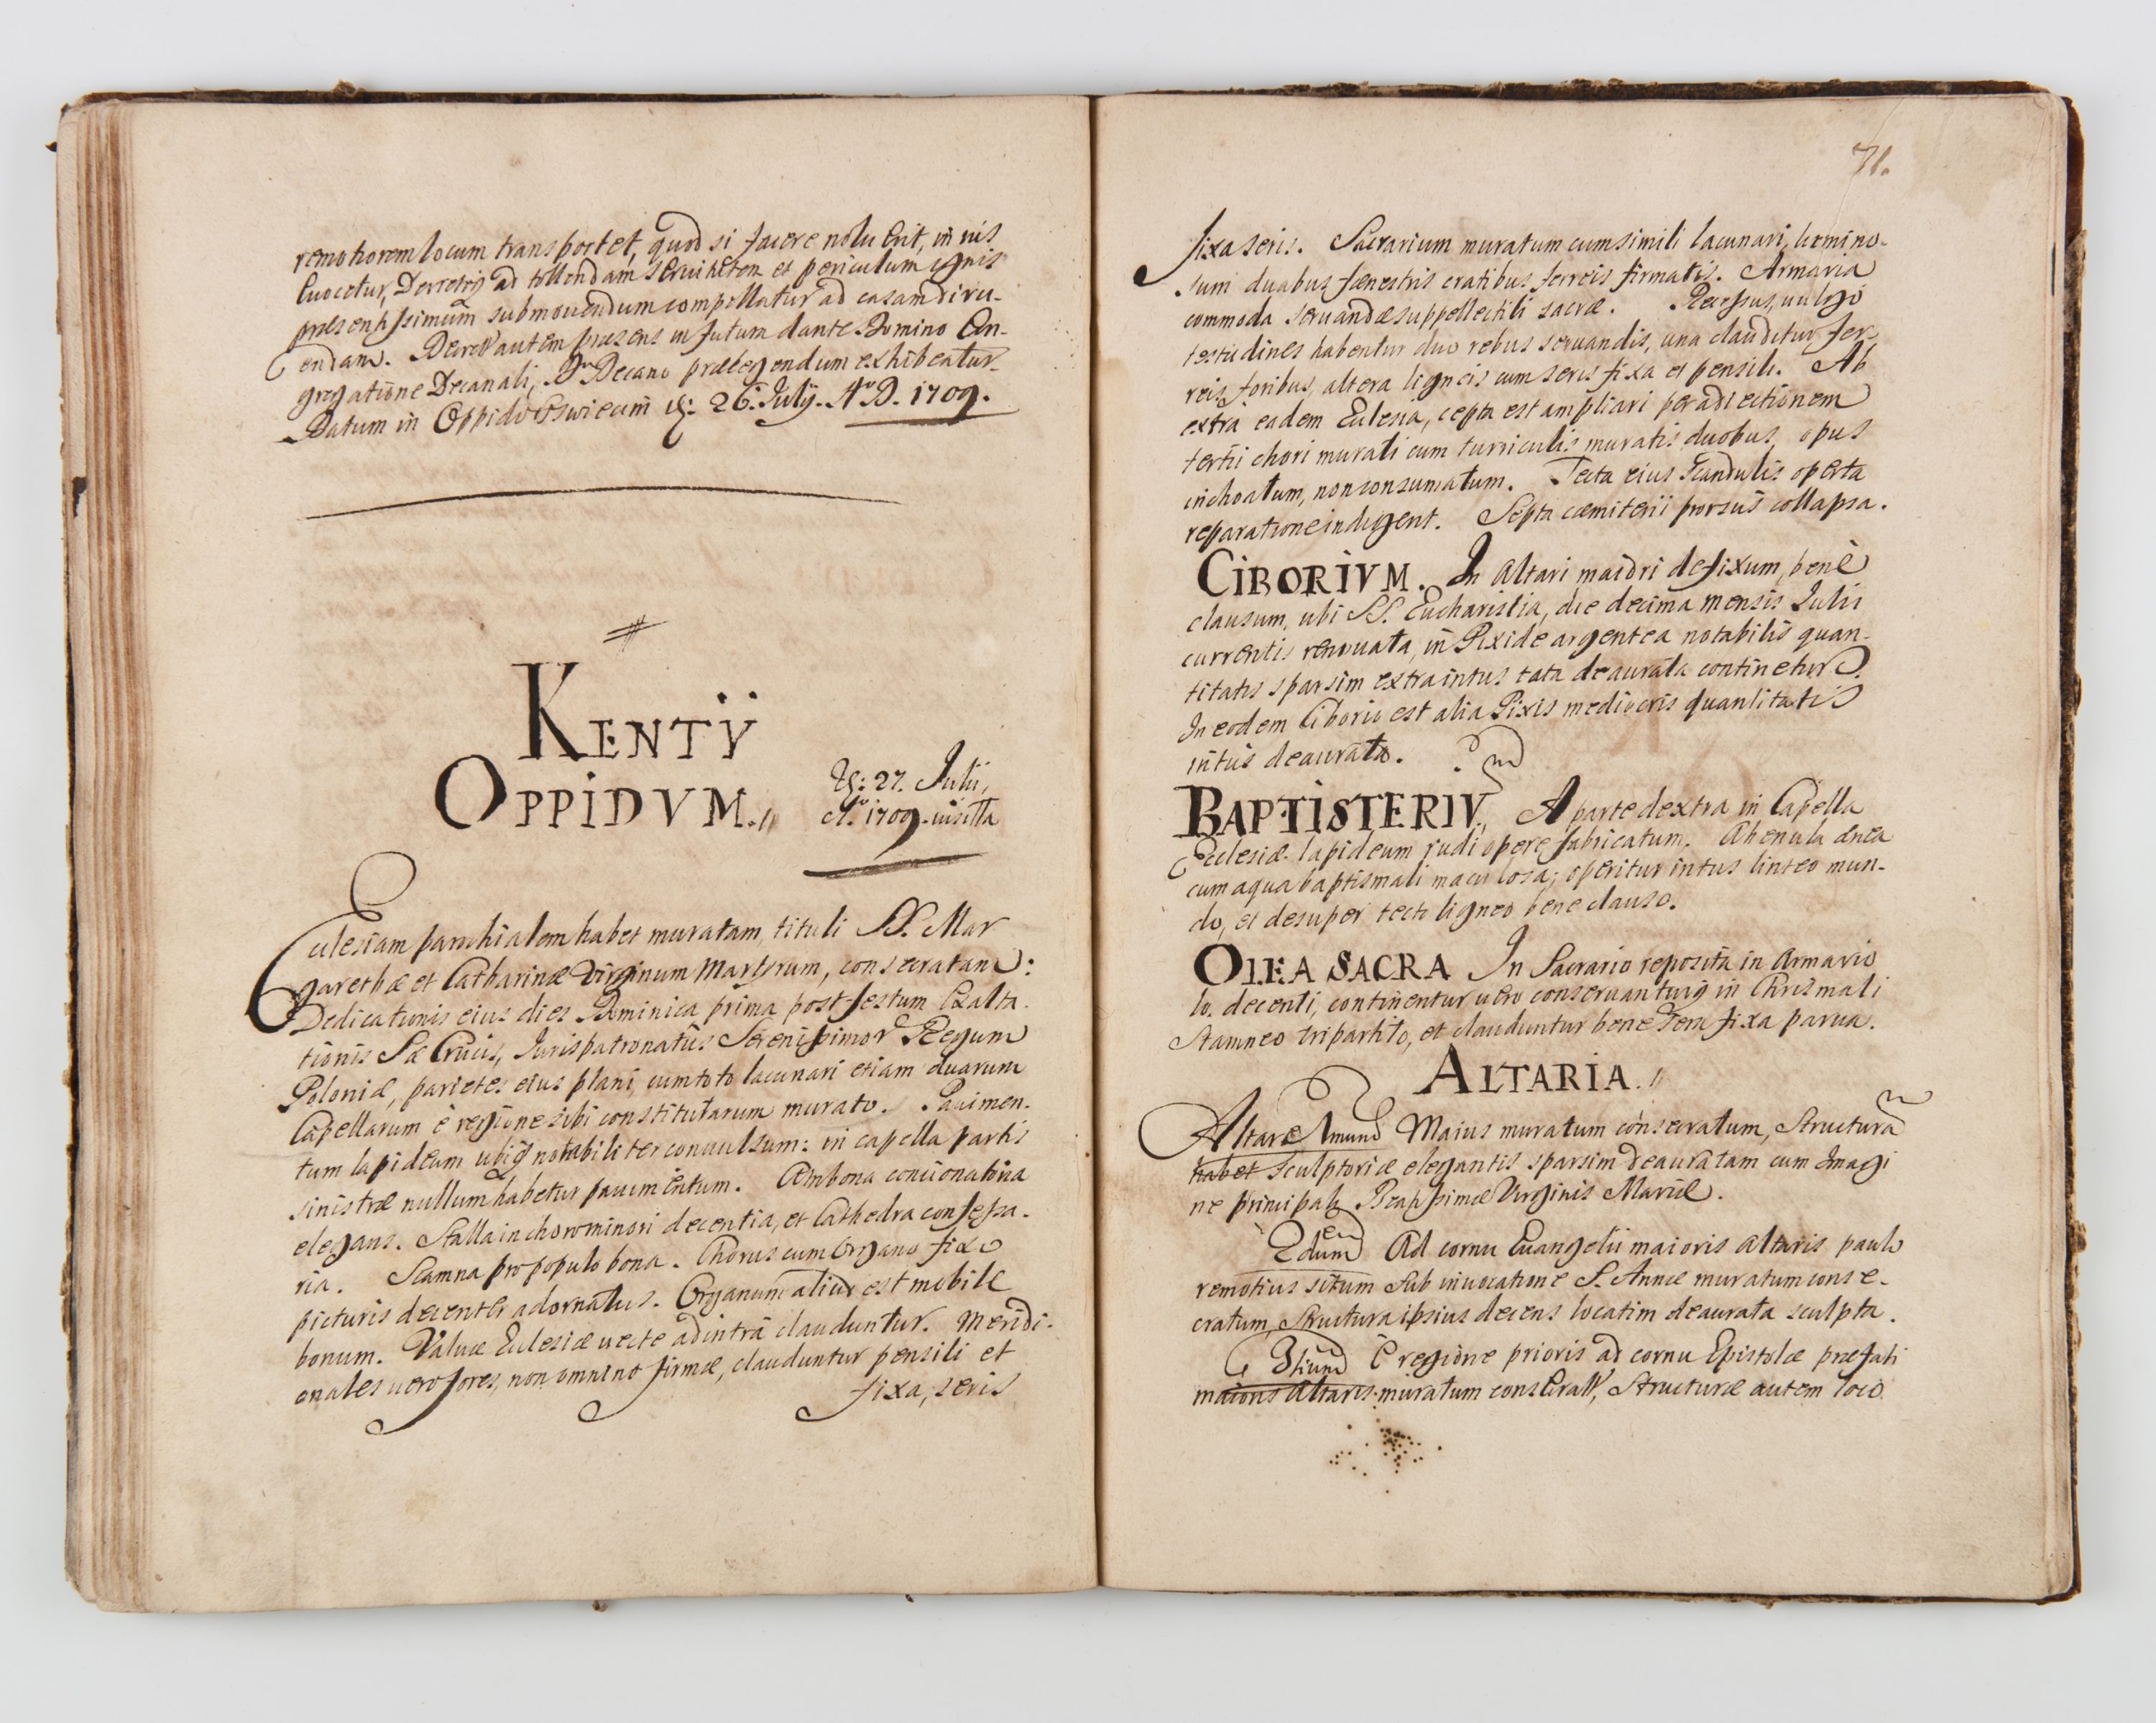 remotiorem locum transportet, quod si facere noluerit, in ius
euocetur, Decretoq ad tollendam seruitutem et periculum ignis
præsentissimum submouendum compellatur ad casam diru-
endam. Decretū autem præsens in futura dante Domino Con-
gregatione Decanali, Dno Decano prælegendum exhibeatur
Datum in Oppido Oswiecim d: 26. Julij. Ao D. 1709.
KENTÿ
OPPIDVM.
d: 27. Julii,
Ao. 1709. uisitta
Ecclesiam parochialem habet muratam, tituli SS. Mar
garethæ et Catharinæ Virginum Martyrum, consecratam:
Dedicationis eius dies Dominica prima post festum Exalta-
tionis Sæ Crucis, Iurispatronatûs Serenissimor Regum
Poloniæ, parietes eius plani, cum toto lacunari etiam duarum
Capellarum è regione sibi constitutarum murato. Pauimen-
tum lapideum ubiq notabiliter conuulsum: in capella partis
sinistræ nullum habetur pauimentum. Ambona concionatoria
elegans. Stalla in choro minori decentia, et Cathedra confessa-
ria. Scamna pro populo bona. Chorus cum Organo fixo
picturis decenter adornatus. Organum aliud est mobile
bonum. Valuæ Ecclesiæ uecte ad intrà clauduntur. Meridi-
onales uero fores, non omnino firmæ, clauduntur pensili et
fixa, seris
71.
fixa seris. Sacrarium muratum cum simili lacunari, lumino-
sum duabus fenestris cratibus ferreis firmatis. Armaria
commoda seruandæ suppellectili sacræ. Recessus, uulgò
testudines habentur duo rebus seruandis, una clauditur fer-
reis foribus, altera ligneis cum seris fixa et pensili. Ab
extrà eadem Ecclesia, cepta est ampliari per adiectionem
tertii chori murati cum turriculis muratis duobus, opus
inchoatum, non consumatum. Tecta eius scandulis operta
reparatione indigent. Septa cœmiterii prorsus collapsa.
CIBORIVM. In Altari maiori defixum, benè
clausum, ubi SS. Eucharistia, die decima mensis Julii
currentis renouata, in Pixide argentea notabilis quan-
titatis sparsim extra intus tota deaurata continetur.
In eodem Ciborio est alia Pixis mediocris quantitatis
intus deaurata.
BAPTISTERIV̄, A parte dextra in Capella
Ecclesiæ lapideum rudi opere fabricatum. Ahenula ænea
cum aqua baptismali maculosa; operitur intus linteo mun-
do, et desuper tecto ligneo bene clauso.
OLEA SACRA In Sacrario reposita in Armario
lo. decenti, continentur uero conseruanturq in Chrismali
stamneo tripartito, et clauduntur bene sera fixa parua.
ALTARIA.
Altare 1mum Maius muratum consecratum, Structurā
habet sculptoriæ elegantis sparsim deauratam cum Imagi
ne principali Beatissimæ Virginis Mariæ.
2dum Ad cornu Euangelii maioris altaris paulo
remotius situm sub inuocatione S. Annæ muratum conse-
cratum, Structura ipsius decens locatim deaurata sculpta.
3tium è regione prioris ad cornu Epistolæ præfati
maioris Altaris muratum consecratū, Structuræ autem loco